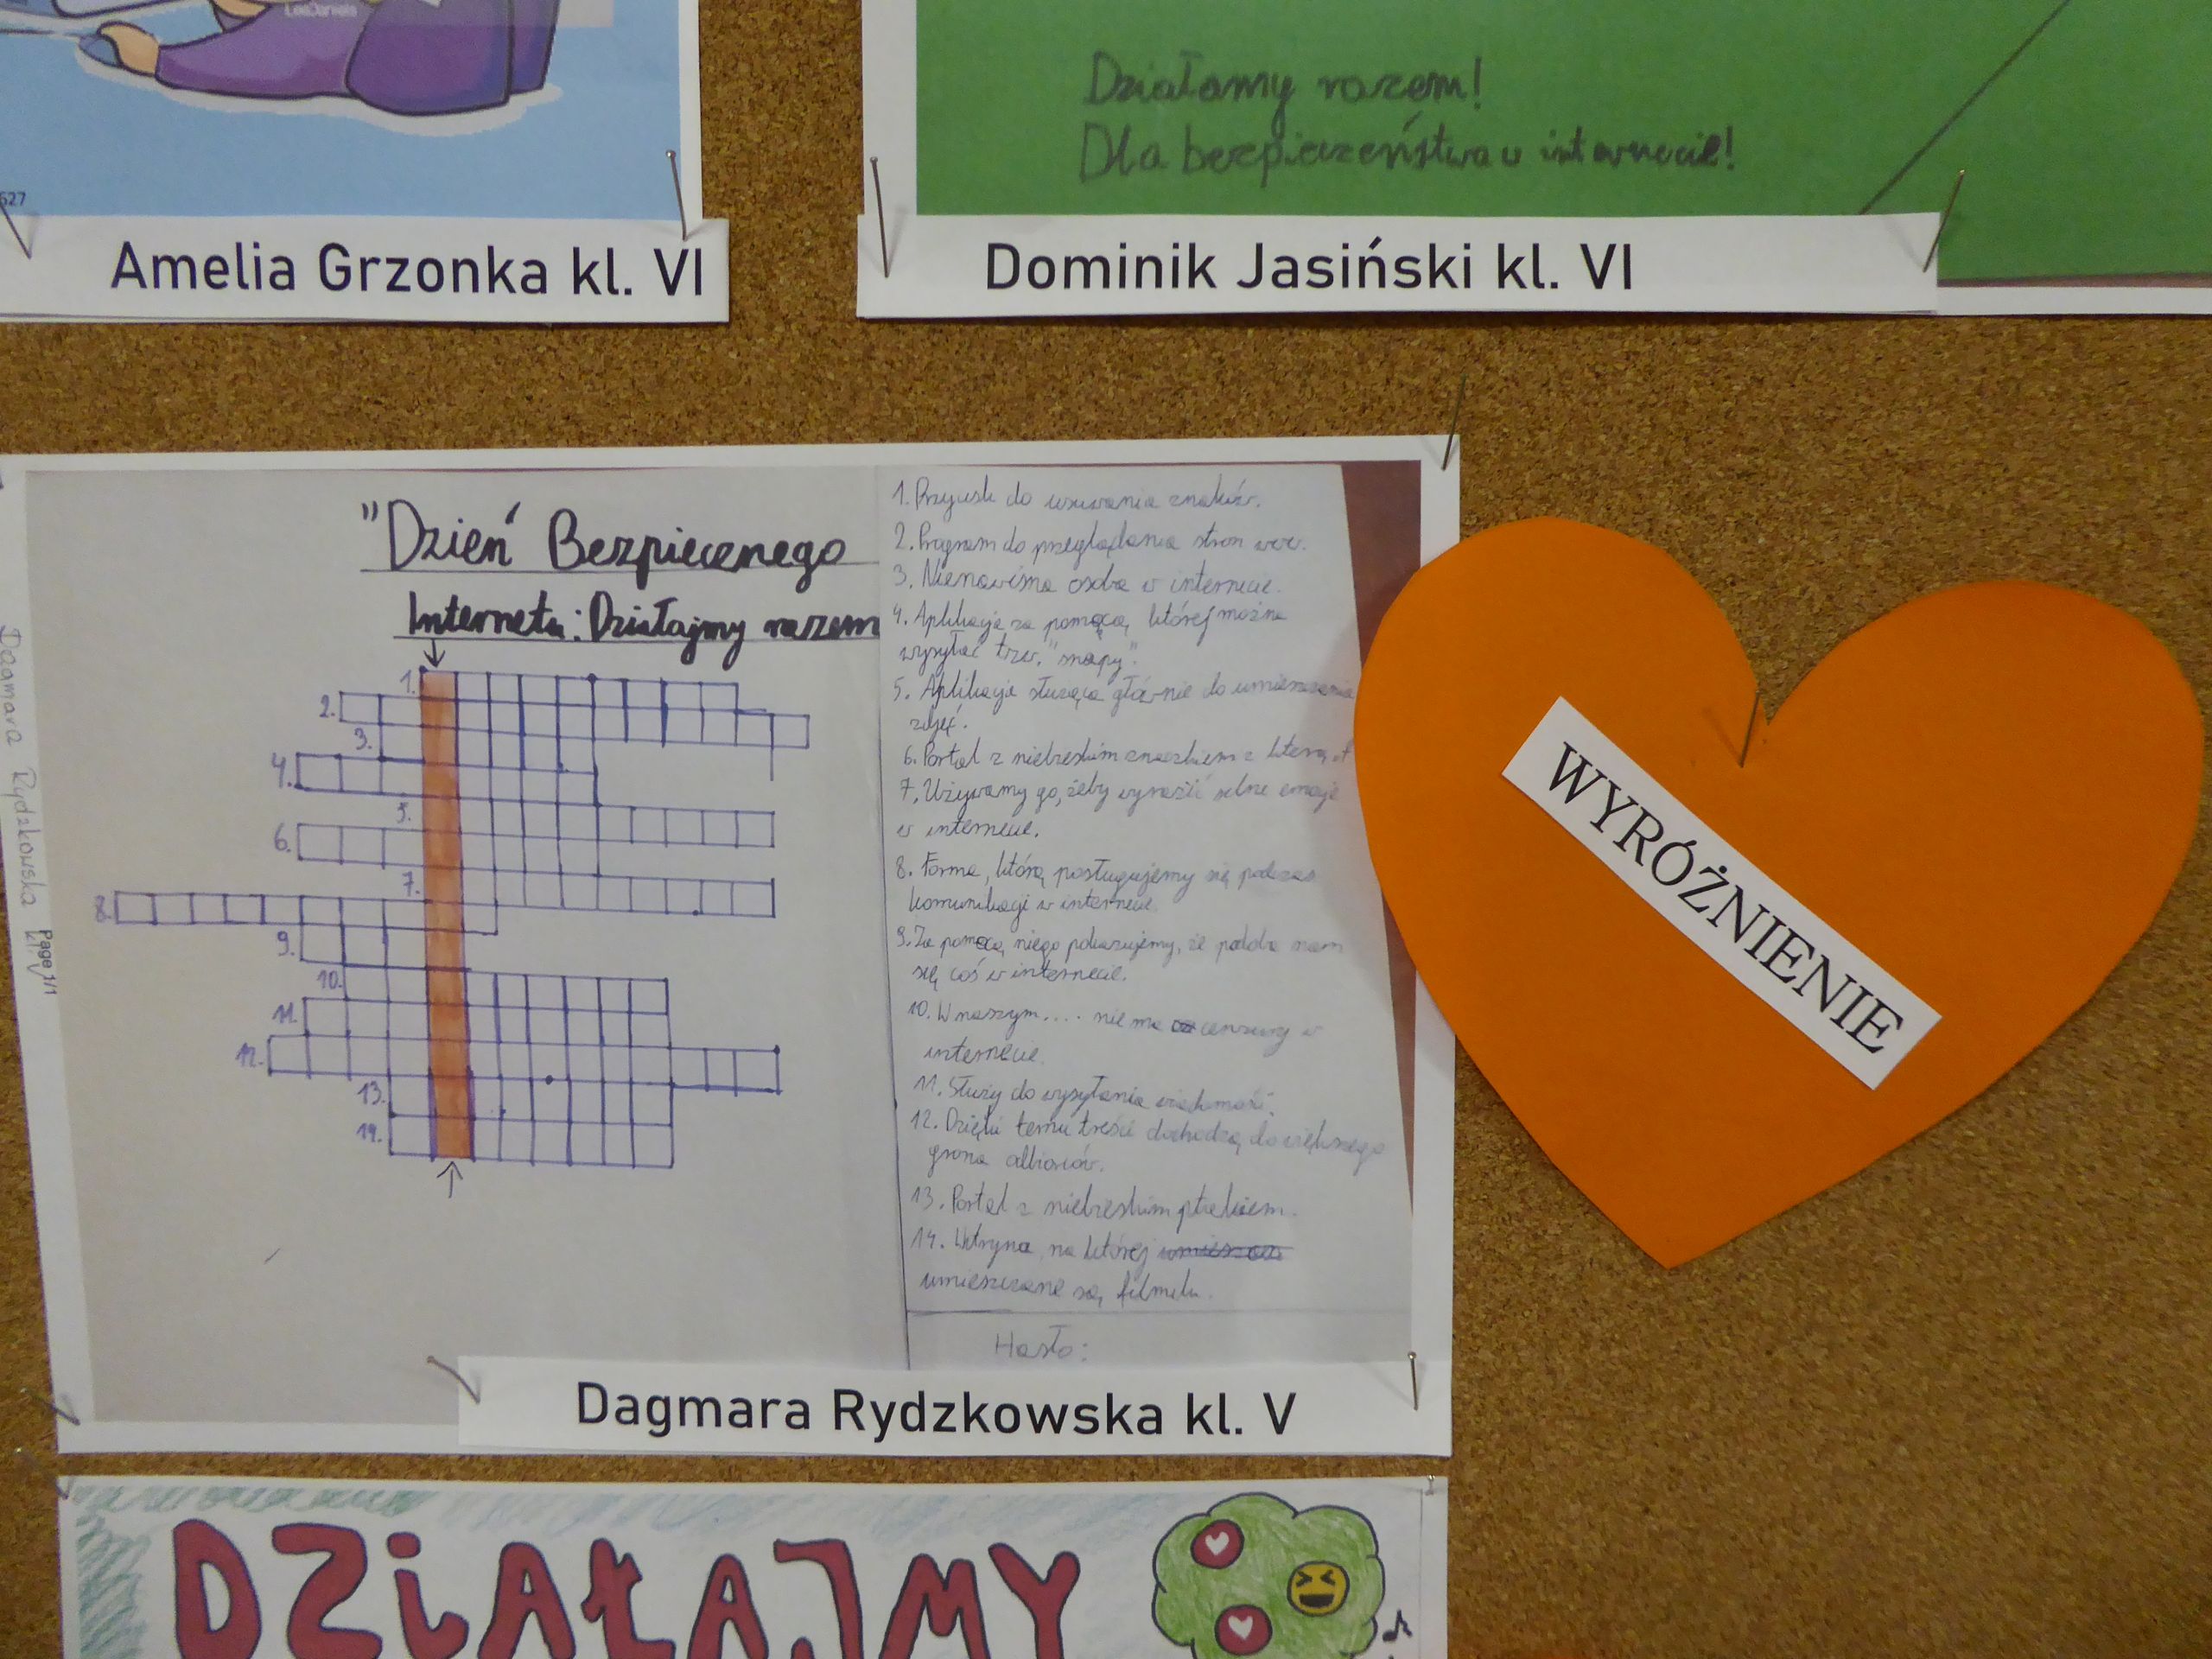 LeeDaniels
627
Amelia Grzonka kl. VI
Działamy razem!
Dla bezpieczeństwa w internecie!
Dominik Jasiński kl. VI
"Dzień Bezpiecznego
Internetu: Działajmy razem
1.
2.
3.
4.
5.
6.
7.
8.
9.
10.
11.
12.
13.
14.
1. Przycisk do usuwania znaków.
2. Program do przeglądania stron www.
3. Nienawistna osoba w internecie.
4. Aplikacja za pomocą której można
wysyłać tzw. "snapy".
5. Aplikacja służąca głównie do umieszczania
zdjęć.
6. Portal z niebieskim znaczkiem z literą f
7. Używamy go, żeby wyrazić silne emocje
w internecie.
8. Forma, którą posługujemy się podczas
komunikacji w internecie.
9. Za pomocą niego pokazujemy, że podoba nam
się coś w internecie.
10. W naszym.... nie ma cenzury w
internecie.
11. Służy do wysyłania wiadomości.
12. Dzięki temu treści dochodzą do większego
grona odbiorców.
13. Portal z niebieskim ptakiem.
14. Witryna, na której
umieszczane są filmiki.
Hasło:
Dagmara Rydzkowska kl. V
Page 1/1
Dagmara Rydzkowska kl. V
WYRÓŻNIENIE
DZiAŁAJMY